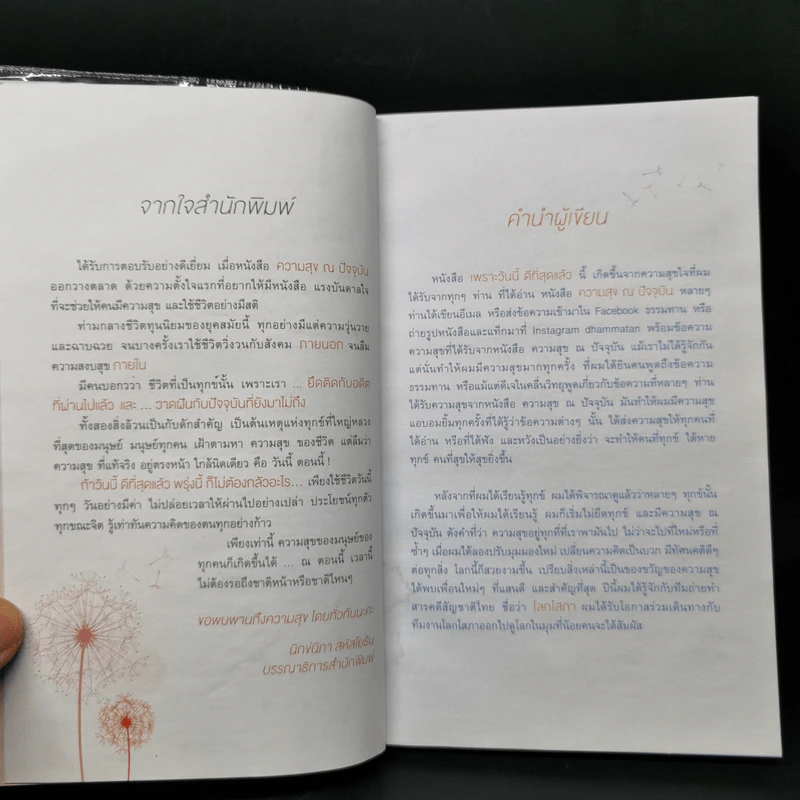 จากใจสำนักพิมพ์
ได้รับการตอบรับอย่างดีเยี่ยม เมื่อหนังสือ ความสุข ณ ปัจจุบัน
ออกวางตลาด ด้วยความตั้งใจแรกที่อยากให้มีหนังสือ แรงบันดาลใจ
ที่จะช่วยให้คนมีความสุข และใช้ชีวิตอย่างมีสติ
ท่ามกลางชีวิตทุนนิยมของยุคสมัยนี้ ทุกอย่างมีแต่ความวุ่นวาย
และฉาบฉวย จนบางครั้งเราใช้ชีวิตวิ่งวนกับสังคม ภายนอก จนลืม
ความสงบสุข ภายใน
มีคนบอกว่า ชีวิตที่เป็นทุกข์นั้น เพราะเรา ... ยึดติดกับอดีต
ที่ผ่านไปแล้ว และ ... วาดฝันกับปัจจุบันที่ยังมาไม่ถึง
ทั้งสองสิ่งล้วนเป็นกับดักสำคัญ เป็นต้นเหตุแห่งทุกข์ที่ใหญ่หลวง
ที่สุดของมนุษย์ มนุษย์ทุกคน เฝ้าตามหา ความสุข ของชีวิต แต่ลืมว่า
ความสุข ที่แท้จริง อยู่ตรงหน้า ใกล้นิดเดียว คือ วันนี้ ตอนนี้ !
ถ้าวันนี้ ดีที่สุดแล้ว พรุ่งนี้ ก็ไม่ต้องกลัวอะไร... เพียงใช้ชีวิตวันนี้
ทุกๆ วันอย่างมีค่า ไม่ปล่อยเวลาให้ผ่านไปอย่างเปล่า ประโยชน์ทุกตัว
ทุกขณะจิต รู้เท่าทันความคิดของตนทุกอย่างก้าว
เพียงเท่านี้ ความสุขของมนุษย์ของ
ทุกคนก็เกิดขึ้นได้ ... ณ ตอนนี้ เวลานี้
ไม่ต้องรอถึงชาติหน้าหรือชาติไหนๆ
ขอพบพานถึงความสุข โดยทั่วกันนะคะ
นิกข์นิภา สหัสโยธิน
บรรณาธิการสำนักพิมพ์
คำนำผู้เขียน
หนังสือ เพราะวันนี้ ดีที่สุดแล้ว นี้ เกิดขึ้นจากความสุขใจที่ผม
ได้รับจากทุกๆ ท่าน ที่ได้อ่าน หนังสือ ความสุข ณ ปัจจุบัน หลายๆ
ท่านได้เขียนอีเมล หรือส่งข้อความเข้ามาใน Facebook ธรรมทาน หรือ
ถ่ายรูปหนังสือและแท็กมาที่ Instagram dhammatan พร้อมข้อความ
ความสุขที่ได้รับจากหนังสือ ความสุข ณ ปัจจุบัน แม้เราไม่ได้รู้จักกัน
แต่นั่นทำให้ผมมีความสุขมากทุกครั้ง ที่ผมได้ยินคนพูดถึงข้อความ
ธรรมทาน หรือแม้แต่ดีเจในคลื่นวิทยุพูดเกี่ยวกับข้อความที่หลายๆ ท่าน
ได้รับความสุขจากหนังสือ ความสุข ณ ปัจจุบัน มันทำให้ผมมีความสุข
แอบอมยิ้มทุกครั้งที่ได้รู้ว่าข้อความต่างๆ นั้น ได้ส่งความสุขให้ทุกคนที่
ได้อ่าน หรือที่ได้ฟัง และหวังเป็นอย่างยิ่งว่า จะทำให้คนที่ทุกข์ ได้หาย
ทุกข์ คนที่สุขให้สุขยิ่งขึ้น
หลังจากที่ผมได้เรียนรู้ทุกข์ ผมได้พิจารณาดูแล้วว่าหลายๆ ทุกข์นั้น
เกิดขึ้นมาเพื่อให้ผมได้เรียนรู้ ผมก็เริ่มไม่ยึดทุกข์ และมีความสุข ณ
ปัจจุบัน ดังคำที่ว่า ความสุขอยู่ทุกที่ที่เราพามันไป ไม่ว่าจะไปที่ใหม่หรือที่
ซ้ำๆ เมื่อผมได้ลองปรับมุมมองใหม่ เปลี่ยนความคิดเป็นบวก มีทัศนคติดีๆ
ต่อทุกสิ่ง โลกนี้ก็สวยงามขึ้น เปรียบสิ่งเหล่านี้เป็นของขวัญของความสุข
ได้พบเพื่อนใหม่ๆ ที่แสนดี และสำคัญที่สุด ปีนี้ผมได้รู้จักกับทีมถ่ายทำ
สารคดีสัญชาติไทย ชื่อว่า โลกโสภา ผมได้รับโอกาสร่วมเดินทางกับ
ทีมงานโลกโสภาออกไปดูโลกในมุมที่น้อยคนจะได้สัมผัส